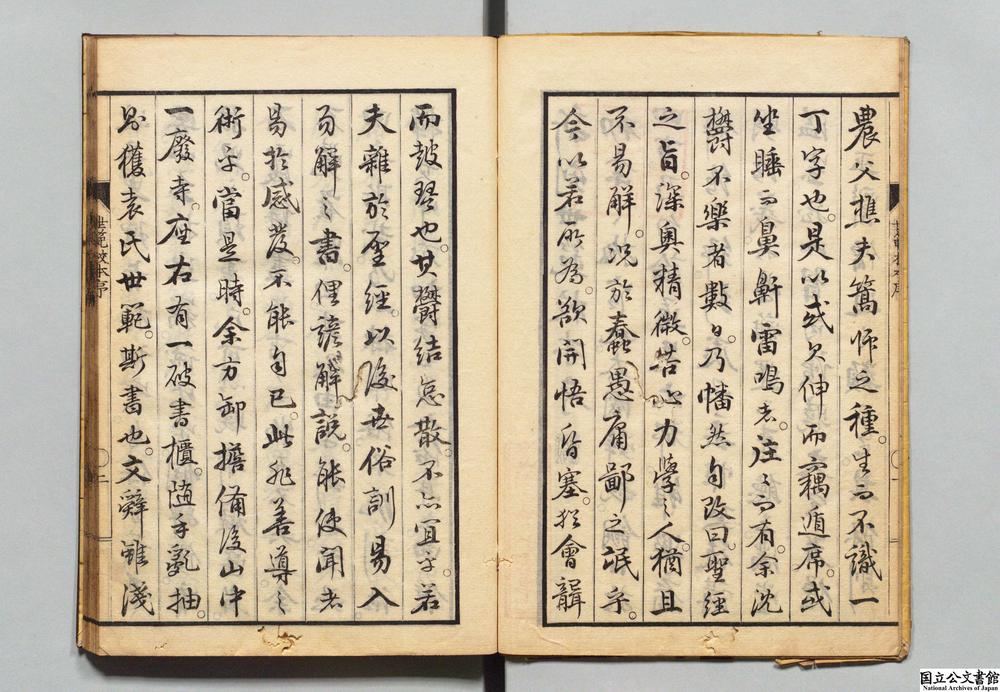 農父樵夫篙師之種。生而不識一
丁字也。是以或欠伸而竊遁席。或
坐睡而鼻鼾雷鳴者。往〻而有。余沈
欝不樂者數日。乃幡然自改曰。聖經
之旨。深奧精微。苦心力學之人。猶且
不易解。况於蠢愚庸鄙之氓乎。
今以若所為。欲開悟昏塞。猶會聾
而鼓琴也。其欝結怠散。不亦宜乎。若
夫雜於聖經。以後世俗訓易入
而解之書。俚諺解說。能使聞者
易於感發。不能自已。此非善導之
術乎。當是時。余方卸擔備後山中
一廢寺。座右有一破書櫃。随手亂抽。
則獲袁氏世範。斯書也。文辭雖淺
世範校本序
一
世範校本序
二
国立公文書館
National Archives of Japan